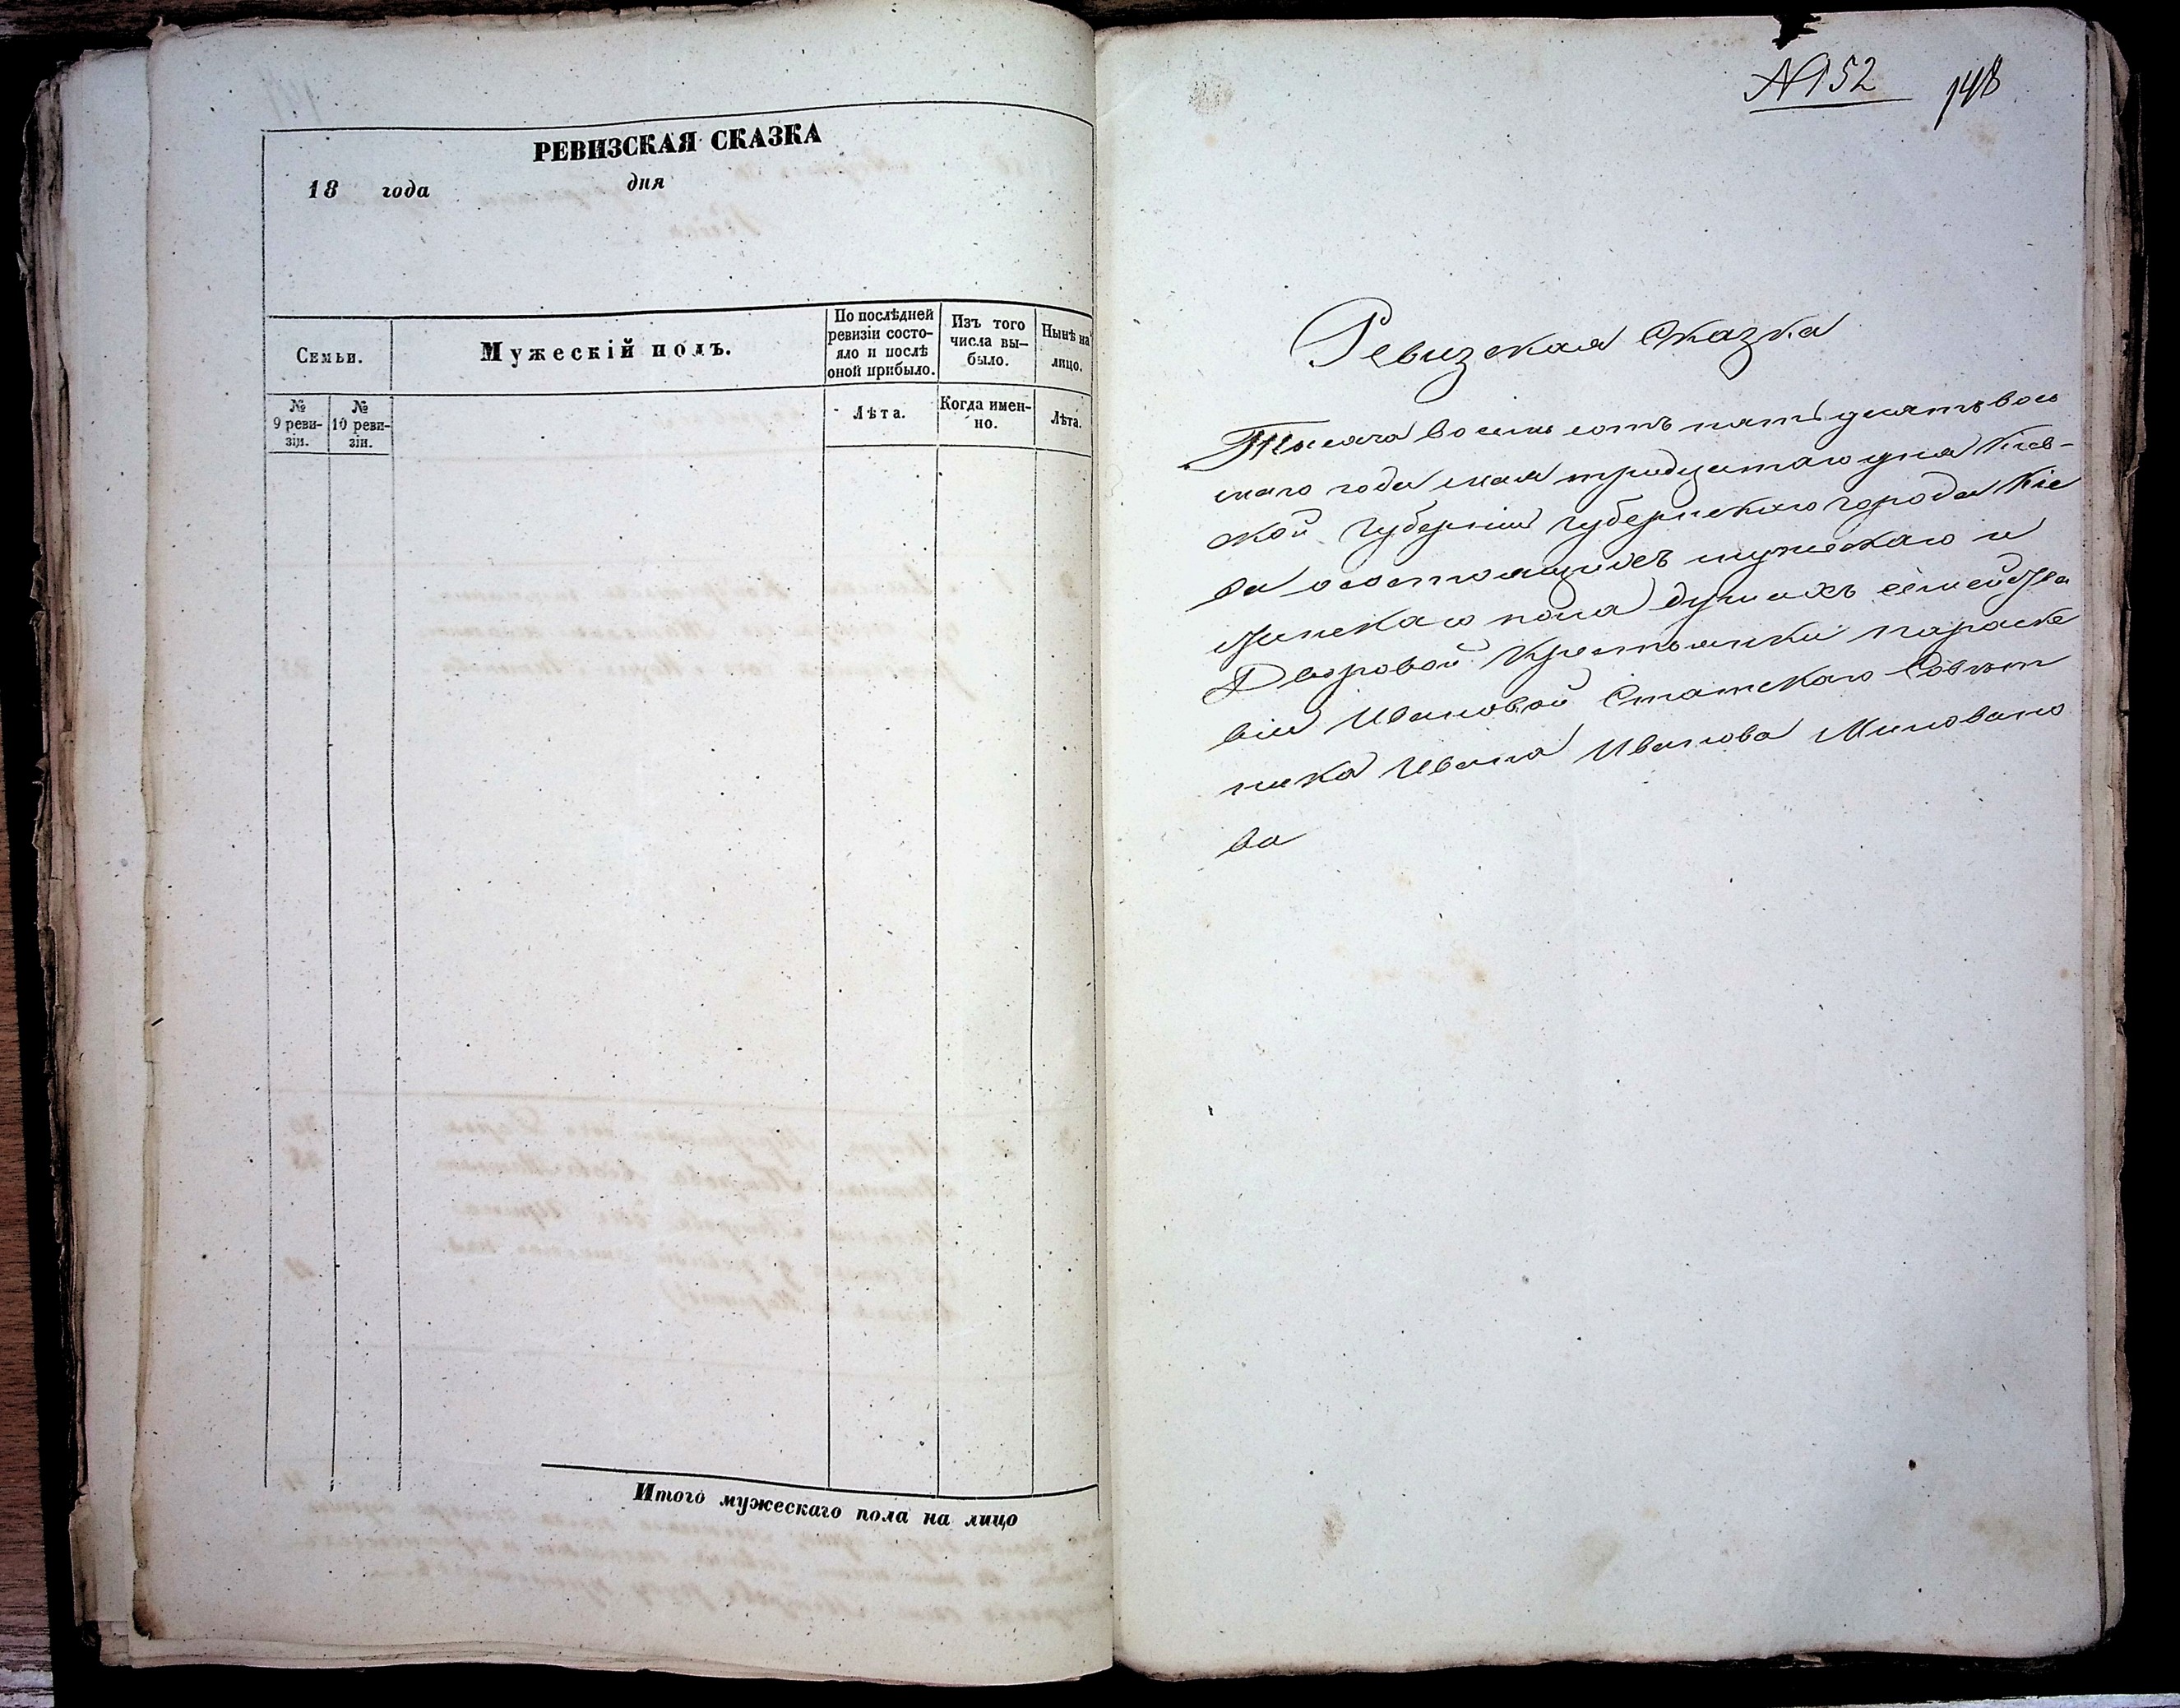 РЕВИЗСКАЯ СКАЗКА
18 года дня
Семьи.
Мужескій полъ.
По послѣдней
ревизіи состо-
яло и послѣ
оной прибыло.
Изъ того
числа вы-
было.
Нынѣ на
лицо.
№
9 реви-
зіи.
№
10 реви-
зіи.
Лѣта.
Когда имен-
но.
Лѣта.
Итого мужескаго пола на лицо
№152 148
Ревизская Сказка
Тысяча восемь сотъ пятьдесятъ вось
маго года мая тридцатаго дня Кіев-
ской Губерніи губернскаго города Кіе
ва о состоящихъ мужескаго и
женскаго пола душахъ семейства
Дворовой Крестьянки Параске
віи Ивановой Статскаго Совѣт
ника Ивана Иванова Миловано
ва